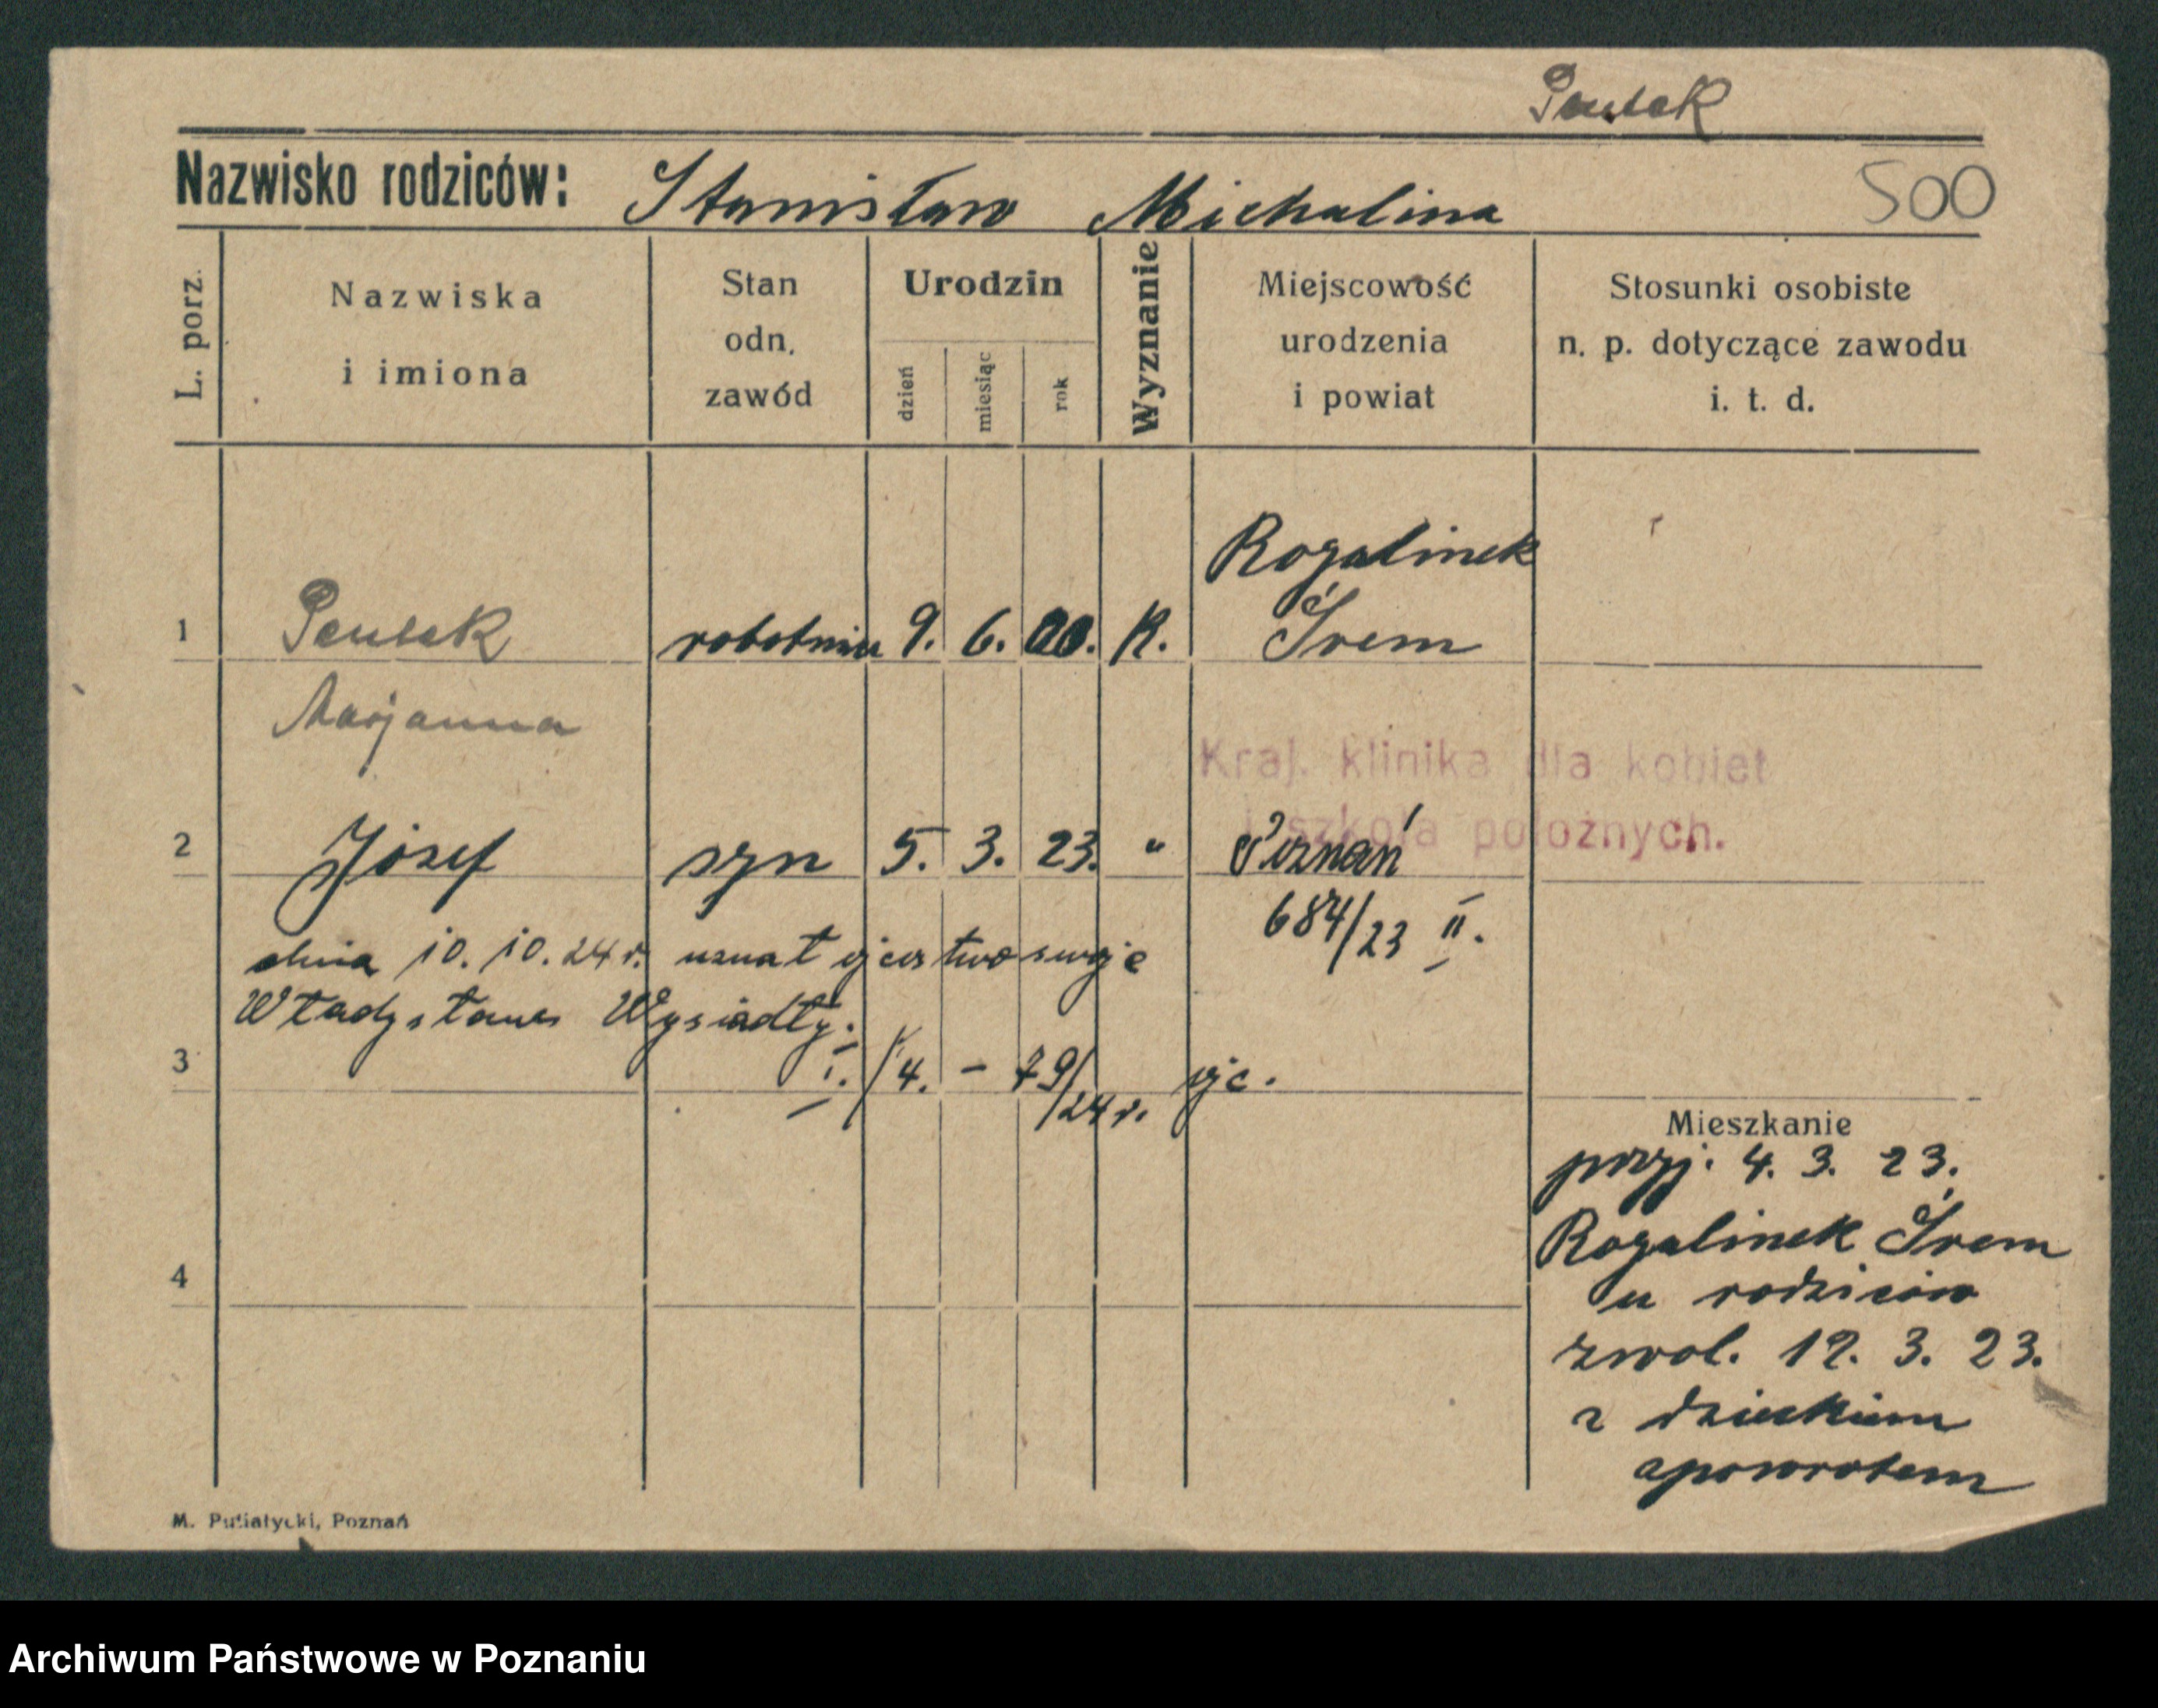 500
Nazwisko rodziców: Stanisław Michalina
L. porz.
Nazwiska i imiona
Stan odn. zawód
Urodzin
dzień miesiąc rok
Wyznanie
Miejscowość urodzenia i powiat
Stosunki osobiste n. p. dotyczące zawodu i. t. d.
Rogalinek
1 robotnica 9. 6. 00. K. Śrem
Marjanna
Kraj. klinika dla kobiet
i szkoła położnych.
2 Józef syn 5. 3. 23. " Poznań
684/23 II.
dnia 10. 10. 24 r. uznał ojcostwo swoje
Władysław Wysiadły.
3 I. /4. - 79/24 r. ojc.
Mieszkanie
przyj. 4. 3. 23.
Rogalinek Śrem
4 u rodziców
zwol. 12. 3. 23.
z dzieckiem
zpowrotem
M. Putiatycki, Poznań
Archiwum Państwowe w Poznaniu